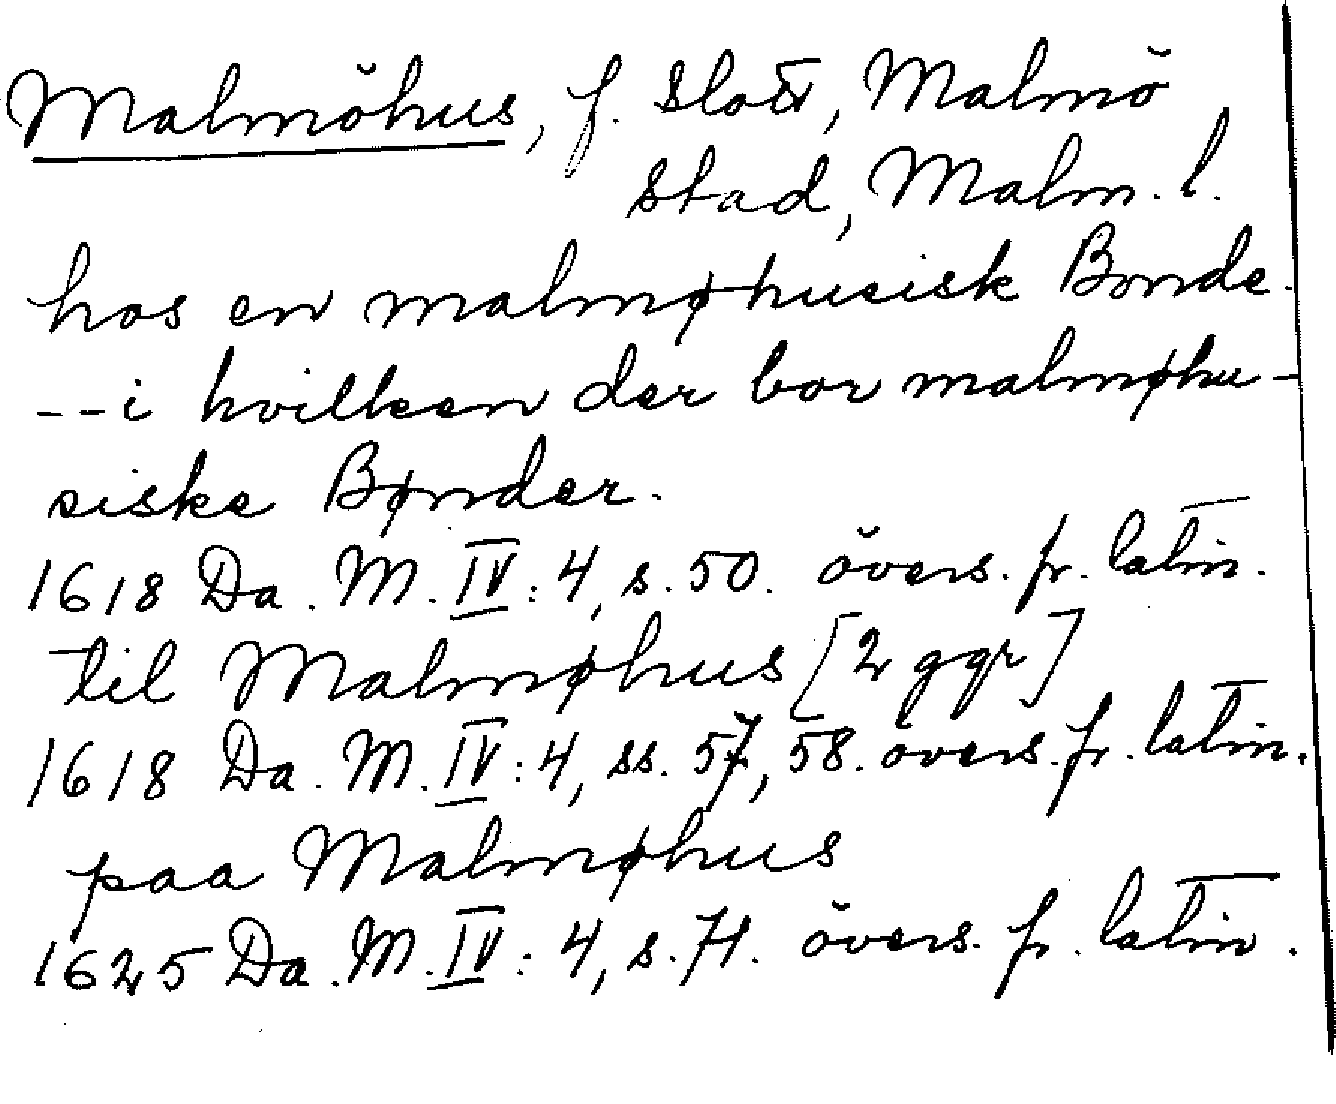 Malmöhus, f. slott, Malmö
stad, Malm. l.
hos en malmøhusisk Bonde.
--i hvilken der bor malmøhu-
siske Bønder.
1618 Da. M. IV: 4, s. 50. övers. fr. latin.
til Malmøhus [2 ggr]
1618 Da. M. IV: 4, ss. 57, 58. övers. fr. latin.
paa Malmøhus
1625 Da. M. IV: 4, s. 71. övers. fr. latin.